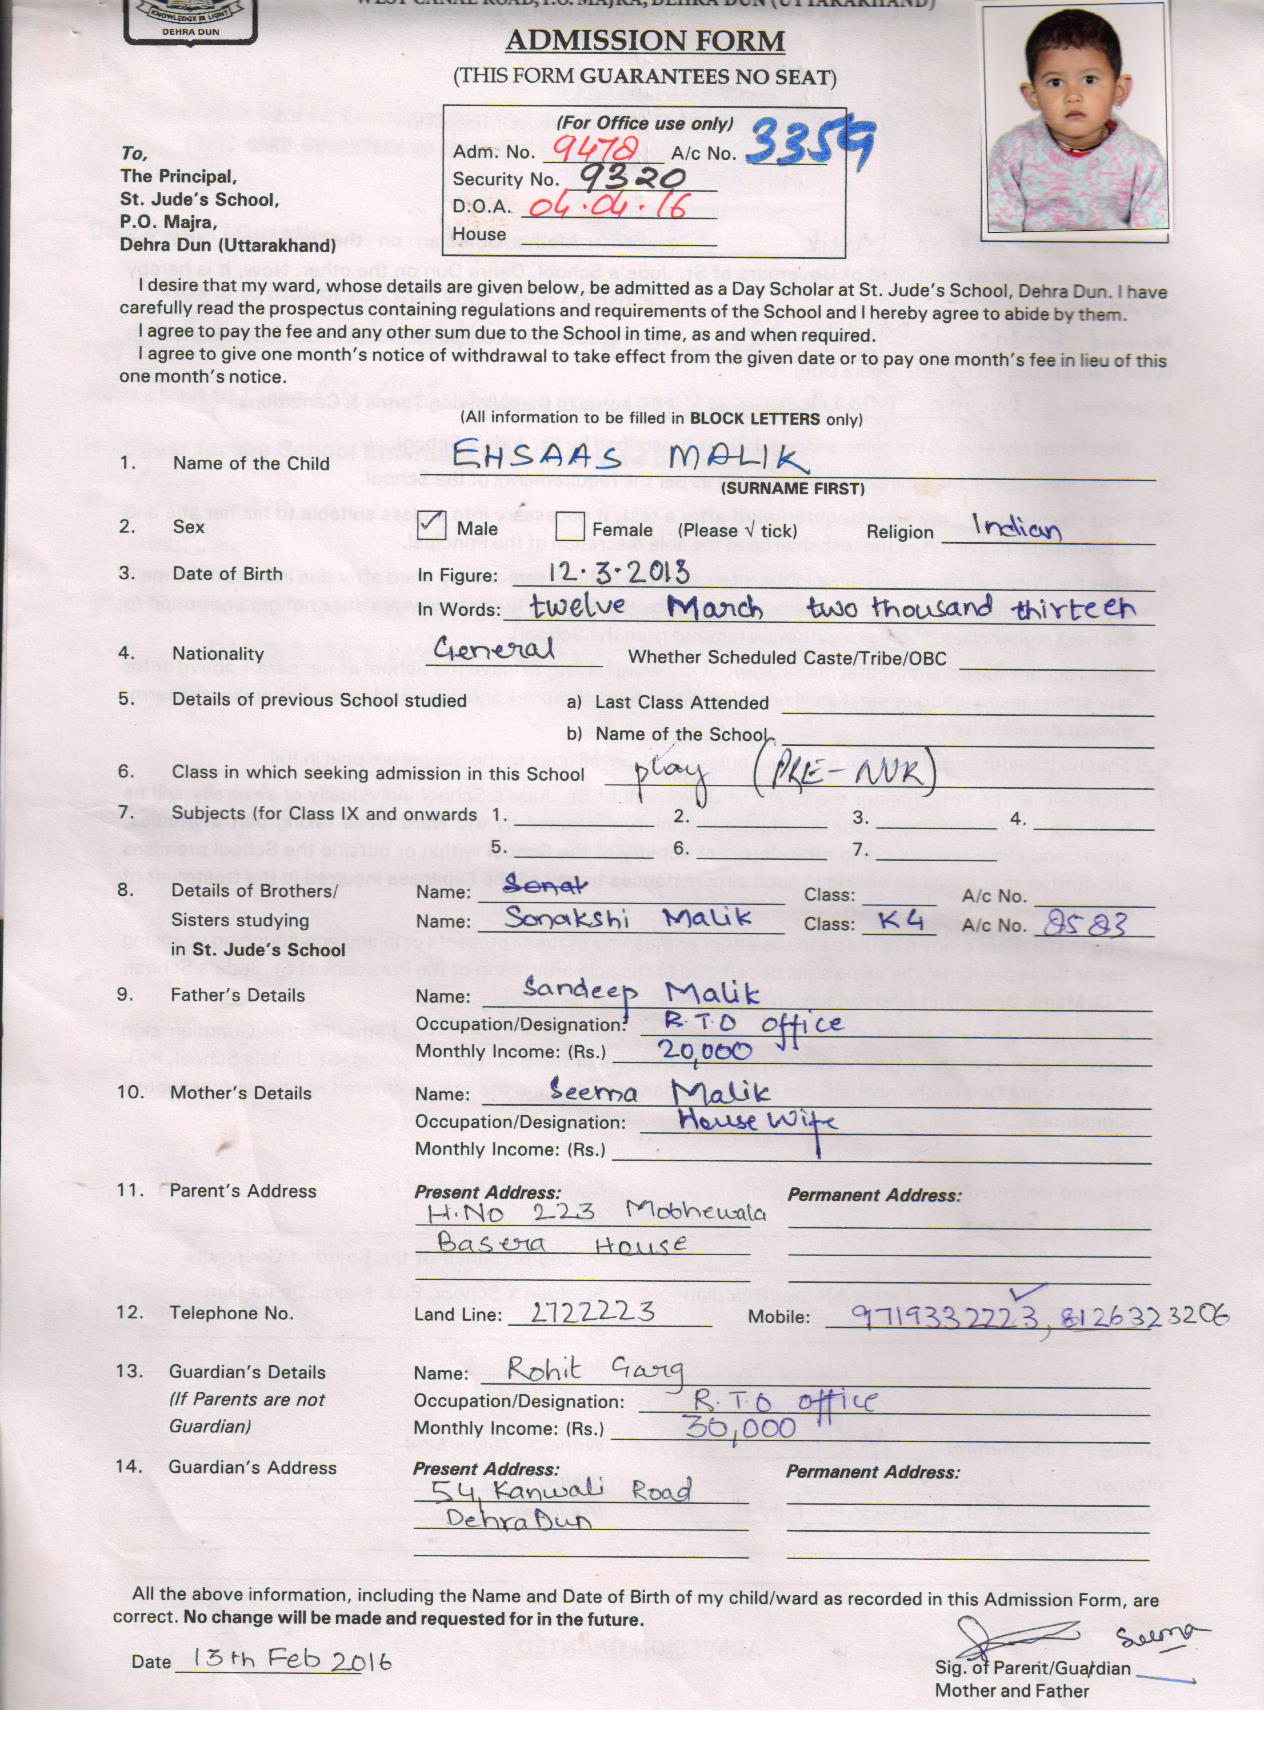 KNOWLEDGE IS LIGHT
DEHRA DUN
WEST CANAL ROAD, P.O. MAJRA, DEHRA DUN (UTTARAKHAND)
ADMISSION FORM
(THIS FORM GUARANTEES NO SEAT)
(For Office use only)
Adm. No. 9478 A/c No. 3359
Security No. 9320
D.O.A. 04.04.16
House
To,
The Principal,
St. Jude's School,
P.O. Majra,
Dehra Dun (Uttarakhand)
I desire that my ward, whose details are given below, be admitted as a Day Scholar at St. Jude's School, Dehra Dun. I have
carefully read the prospectus containing regulations and requirements of the School and I hereby agree to abide by them.
I agree to pay the fee and any other sum due to the School in time, as and when required.
I agree to give one month's notice of withdrawal to take effect from the given date or to pay one month's fee in lieu of this
one month's notice.
(All information to be filled in BLOCK LETTERS only)
1. Name of the Child EHSAAS MALIK
(SURNAME FIRST)
2. Sex ✓ Male Female (Please √ tick) Religion Indian
3. Date of Birth In Figure: 12.3.2013
In Words: twelve March two thousand thirteen
4. Nationality General Whether Scheduled Caste/Tribe/OBC
5. Details of previous School studied a) Last Class Attended
b) Name of the School
6. Class in which seeking admission in this School play (PRE-NUR)
7. Subjects (for Class IX and onwards 1. 2. 3. 4.
5. 6. 7.
8. Details of Brothers/ Name: Sonat Class: A/c No.
Sisters studying Name: Sonakshi Malik Class: K4 A/c No. 8583
in St. Jude's School
9. Father's Details Name: Sandeep Malik
Occupation/Designation: R.T.O office
Monthly Income: (Rs.) 20,000
10. Mother's Details Name: Seema Malik
Occupation/Designation: House Wife
Monthly Income: (Rs.)
11. Parent's Address Present Address: Permanent Address:
H.No 223 Mobhewala
Basera House
12. Telephone No. Land Line: 2722223 Mobile: 9719332223, 8126323206
13. Guardian's Details Name: Rohit Garg
(If Parents are not Occupation/Designation: R.T.O office
Guardian) Monthly Income: (Rs.) 30,000
14. Guardian's Address Present Address: Permanent Address:
54, Kanwali Road
DehraDun
All the above information, including the Name and Date of Birth of my child/ward as recorded in this Admission Form, are
correct. No change will be made and requested for in the future.
Date 13th Feb 2016
Seema
Sig. of Parent/Guardian
Mother and Father